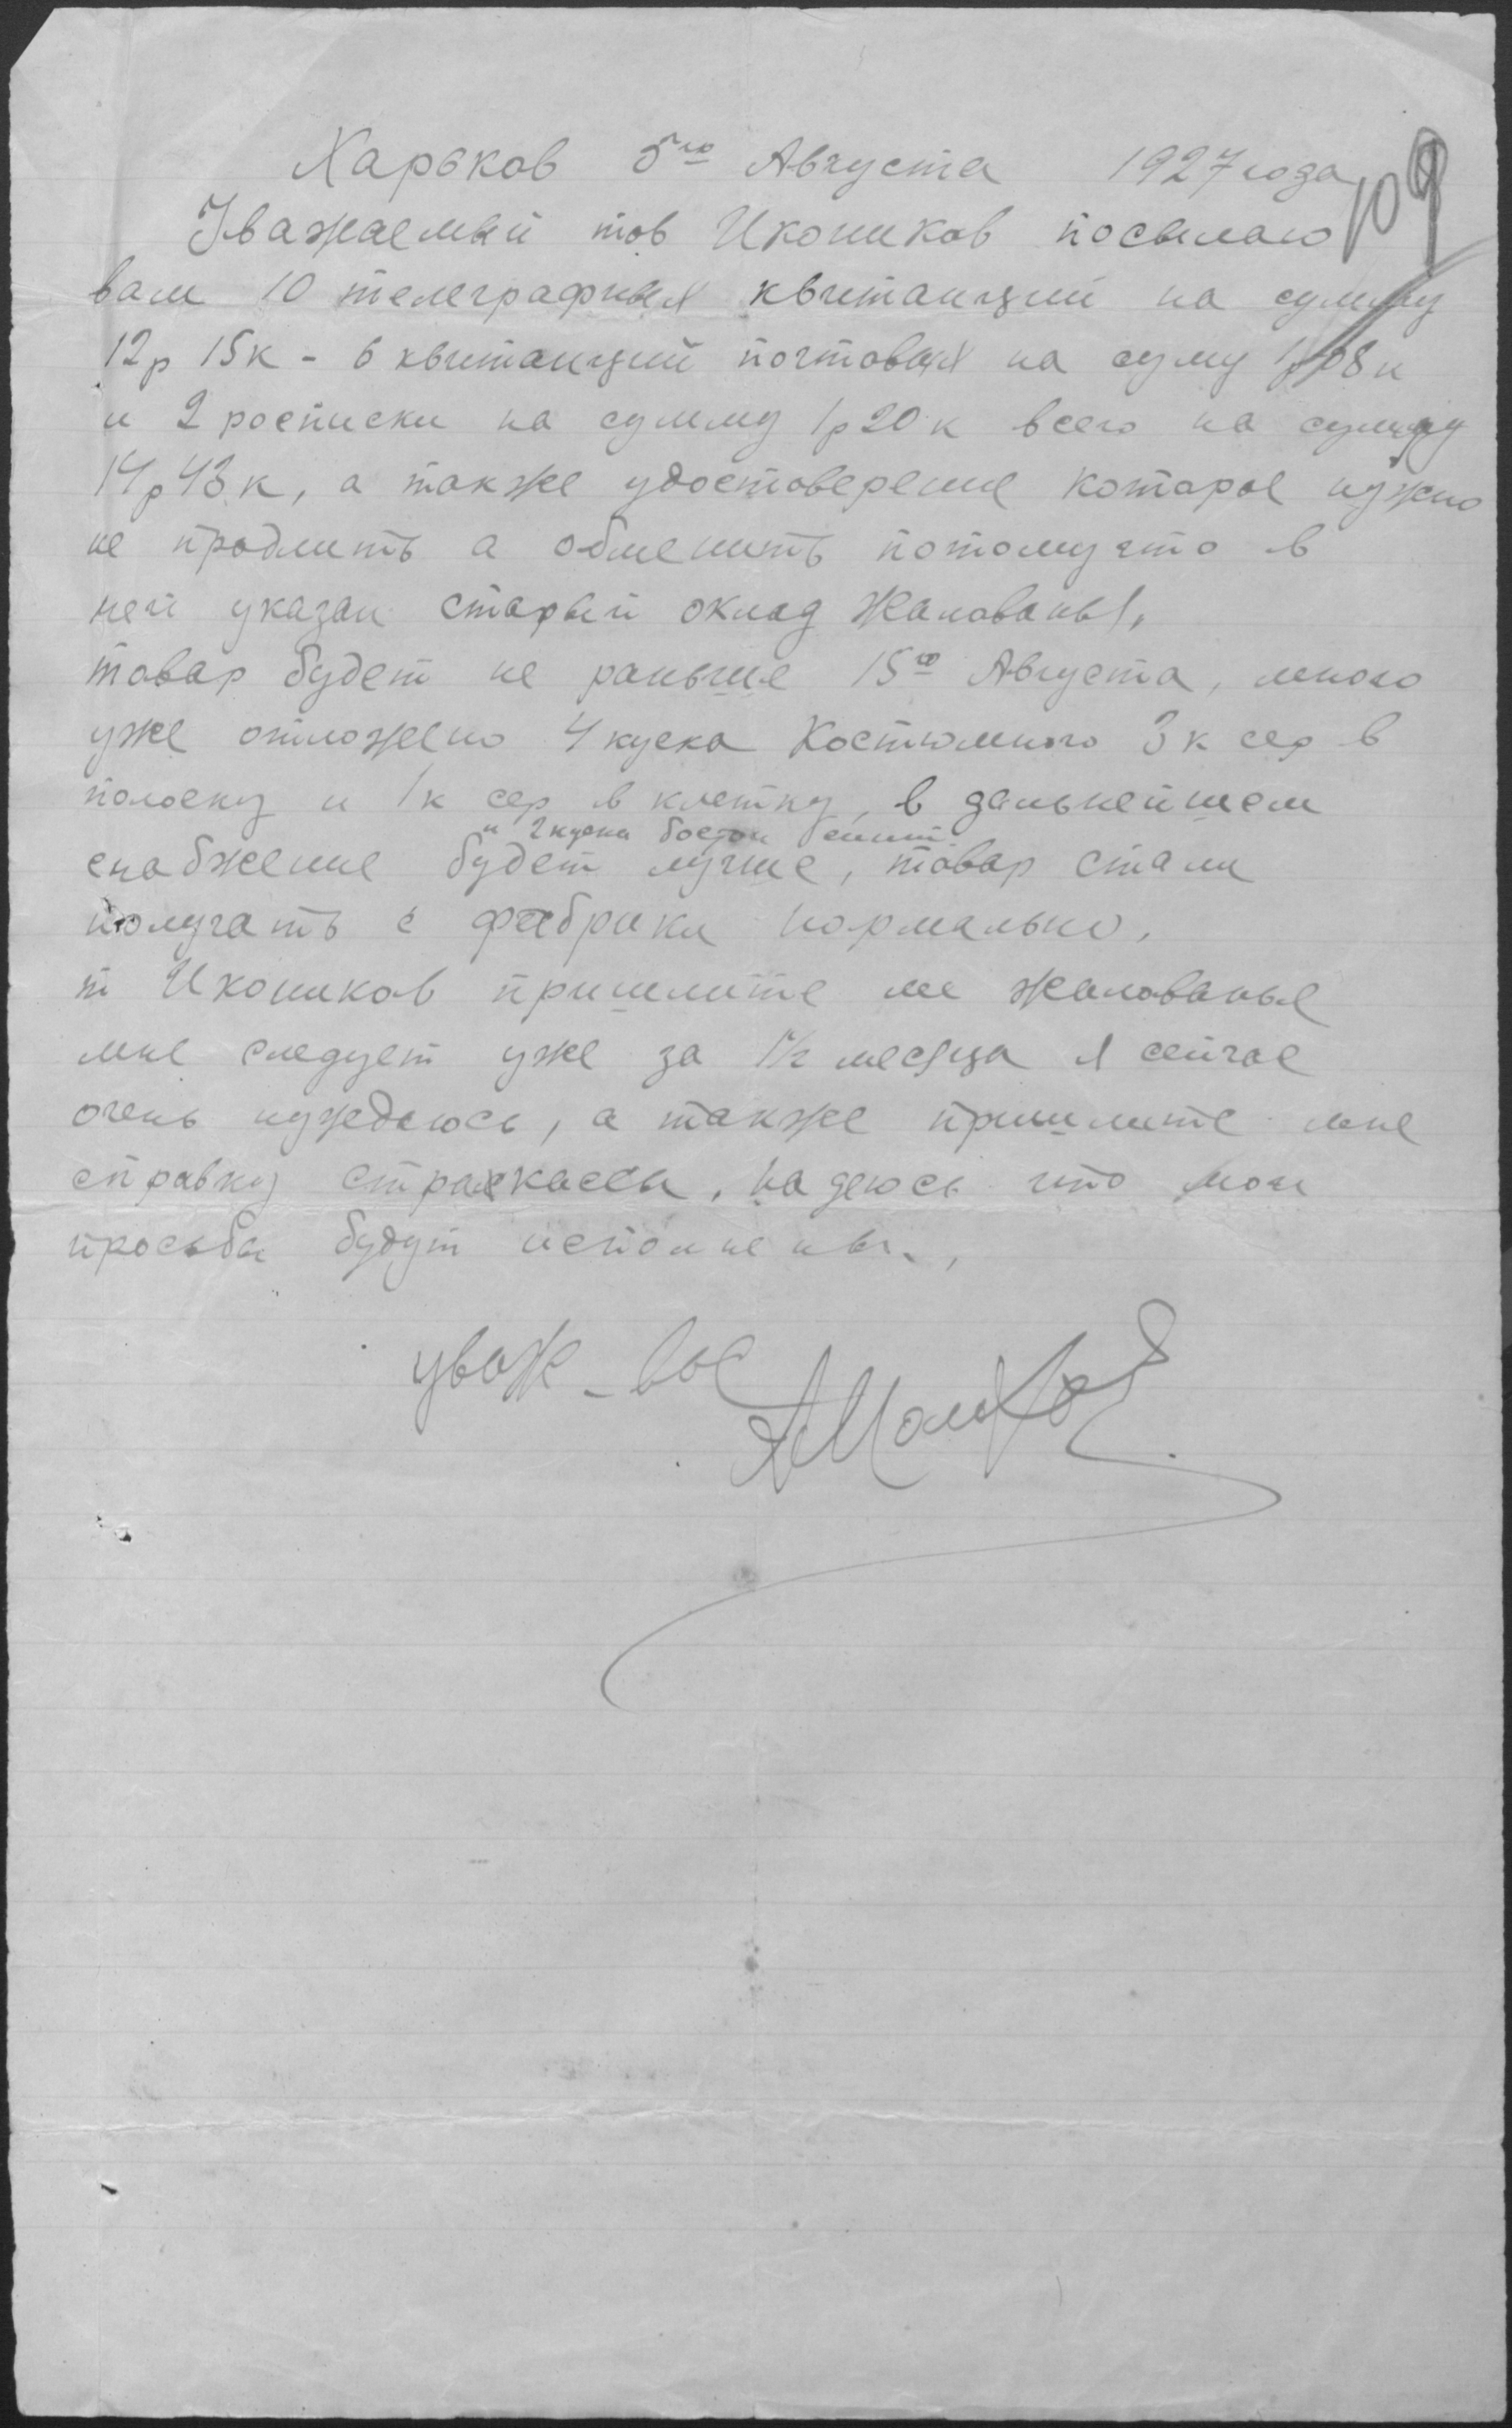 Харьков 5го Августа 1927 года
109
Уважаемый тов Икоников посылаю
вам 10 телеграфных квитанций на сумму
12р 15к - 6 квитанций почтовых на суму 1р 08к
и 2 росписки на сумму 1р 20к всего на сумму
14р 43к, а также удостоверение которое нужно
не продлить а обменить потомучто в
ней указан старый оклад жалованья,
товар будет не раньше 15го Августа, мною
уже отложено 4 куска Костюмного 3к сер в
полоску и 1к сер в клетку, в дальнейшем
и 2 куска бостон
снабжение будет лучше, товар стали
получать с фабрики нормально,
т Икоников пришлите мне жалованье
мне следует уже за 1½ месяца я сейчас
очень нуждаюсь, а также пришлите мне
справку страхкассы, надеюсь что мои
просьбы будут исполнены,
уваж-вас